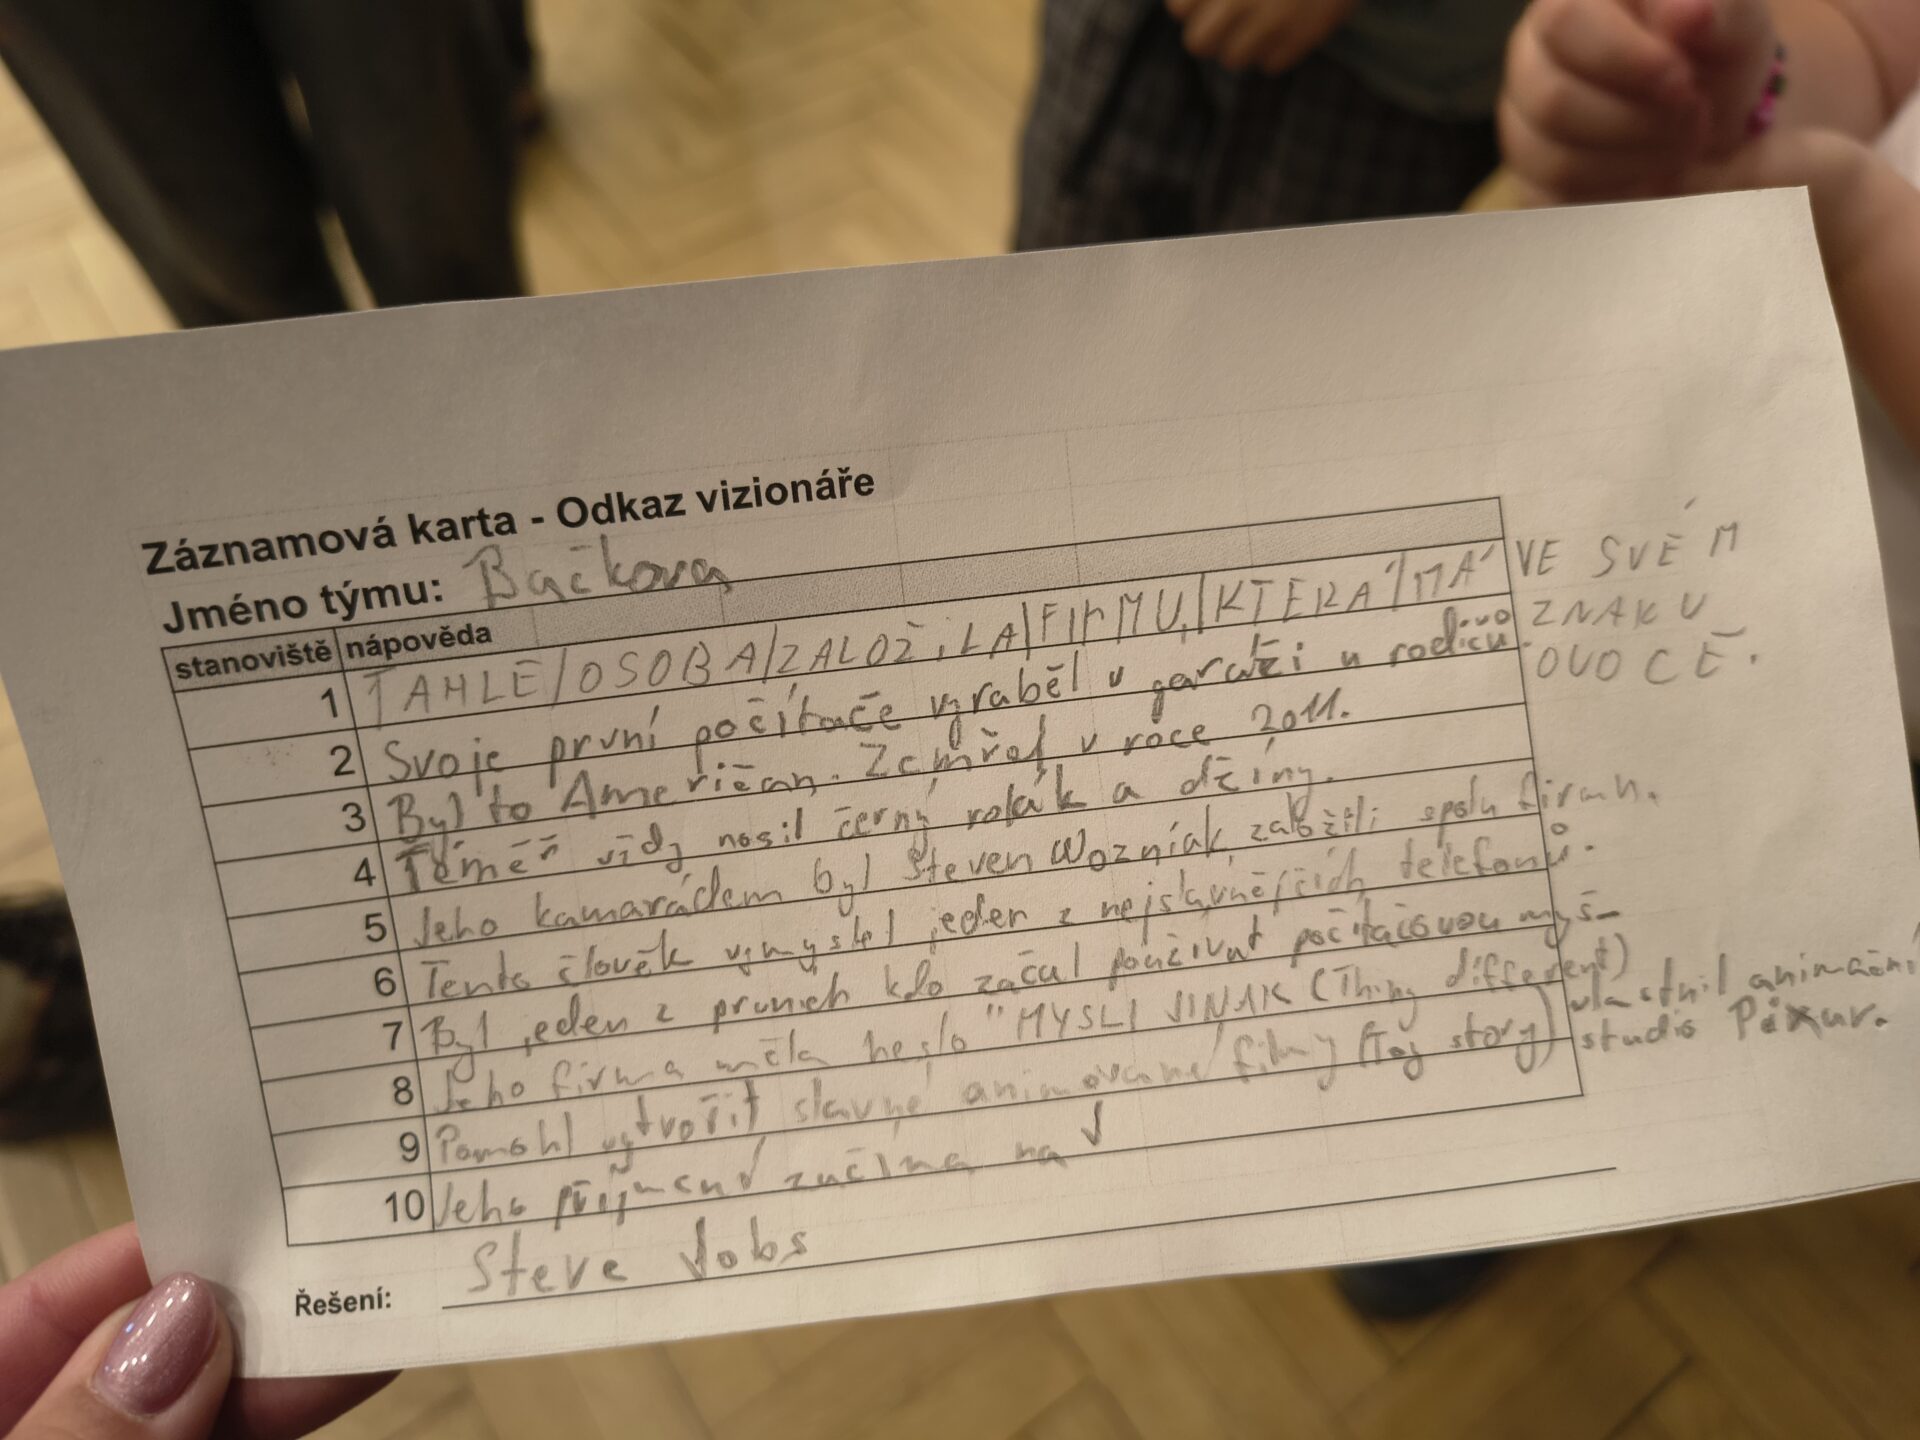 Záznamová karta - Odkaz vizionáře
Jméno týmu: Bačkora
stanoviště nápověda
1 TAHLE/OSOBA/ZALOŽILA/FIRMU,/KTERÁ/MÁ VE SVÉM
ZNAKU
OVOCE.
2 Svoje první počítače vyraběl v garáži u rodičů.
3 Byl to Američan. Zemřel v roce 2011.
4 Téměř vždy nosil černý rolák a džíny.
5 Jeho kamarádem byl Steven Wozniak, založili spolu firmu.
6 Tento člověk vymyslel jeden z nejslavnějších telefonů.
7 Byl jeden z prvních kdo začal používat počítačovou myš-
8 Jeho firma měla heslo "MYSLI JINAK (Thing different)
9 Pomohl vytvořit slavné animované filmy (Toj story) vlastnil animační
studio Pixar.
10 Jeho příjmení začíná na J
Řešení: Steve Jobs